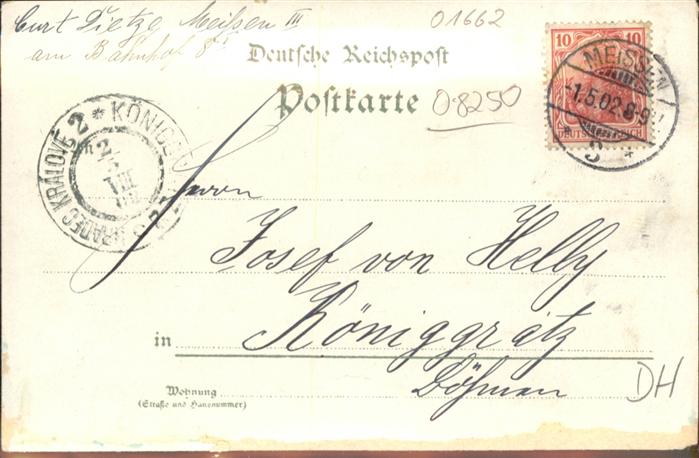 Curt Dietze Meissen III
am Bahnhof 8
01662
Deutsche Reichspost
Postkarte
0-8250
10 10
DEUTSCHES REICH
MEISSEN
-1.5.02.8-9
KÖNIGG
HRADEC KRÁLOVÉ 2
Herrn
Josef von Helly
in Königgrätz
Böhmen
Wohnung
(Straße und Hausnummer)
DH